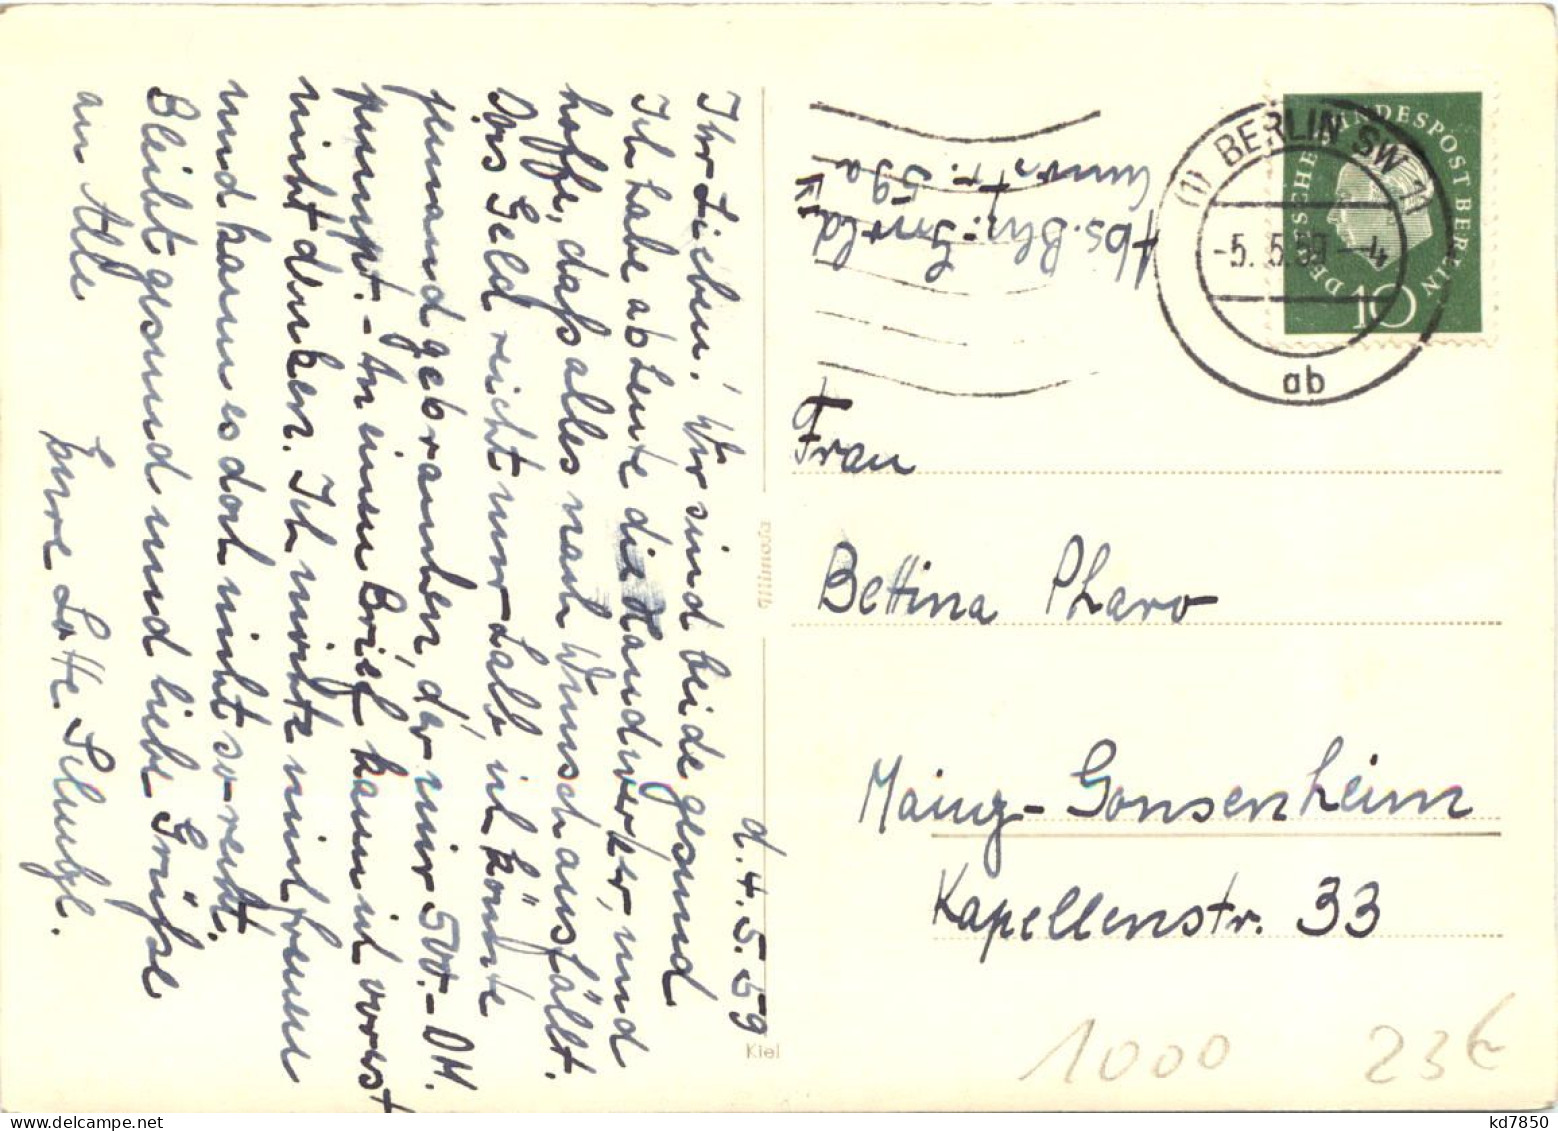 d. 4. 5. 59
Ihr Lieben! Wir sind beide gesund
Ich habe ab heute die Handwerker, und
hoffe, daß alles nach Wunsch ausfällt.
Das Geld reicht nur halb, ich könnte
jemand gebrauchen, der mir 500.- DM.
pumpt. - An einen Brief kann ich vorerst
nicht denken. Ich möchte mich freuen
und kann es doch nicht so recht.
Bleibt gesund und liebe Grüße
an Alle
Eure Lotte
Abs. Bln.
59a
(1) BERLIN SW 11
-5. 5. 59 - 4
ab
DEUTSCHE BUNDESPOST BERLIN
10
Frau
Bettina Pharo
Mainz-Gonsenheim
Kapellenstr. 33
Mimosa
Kiel
1000
23€
kd7850